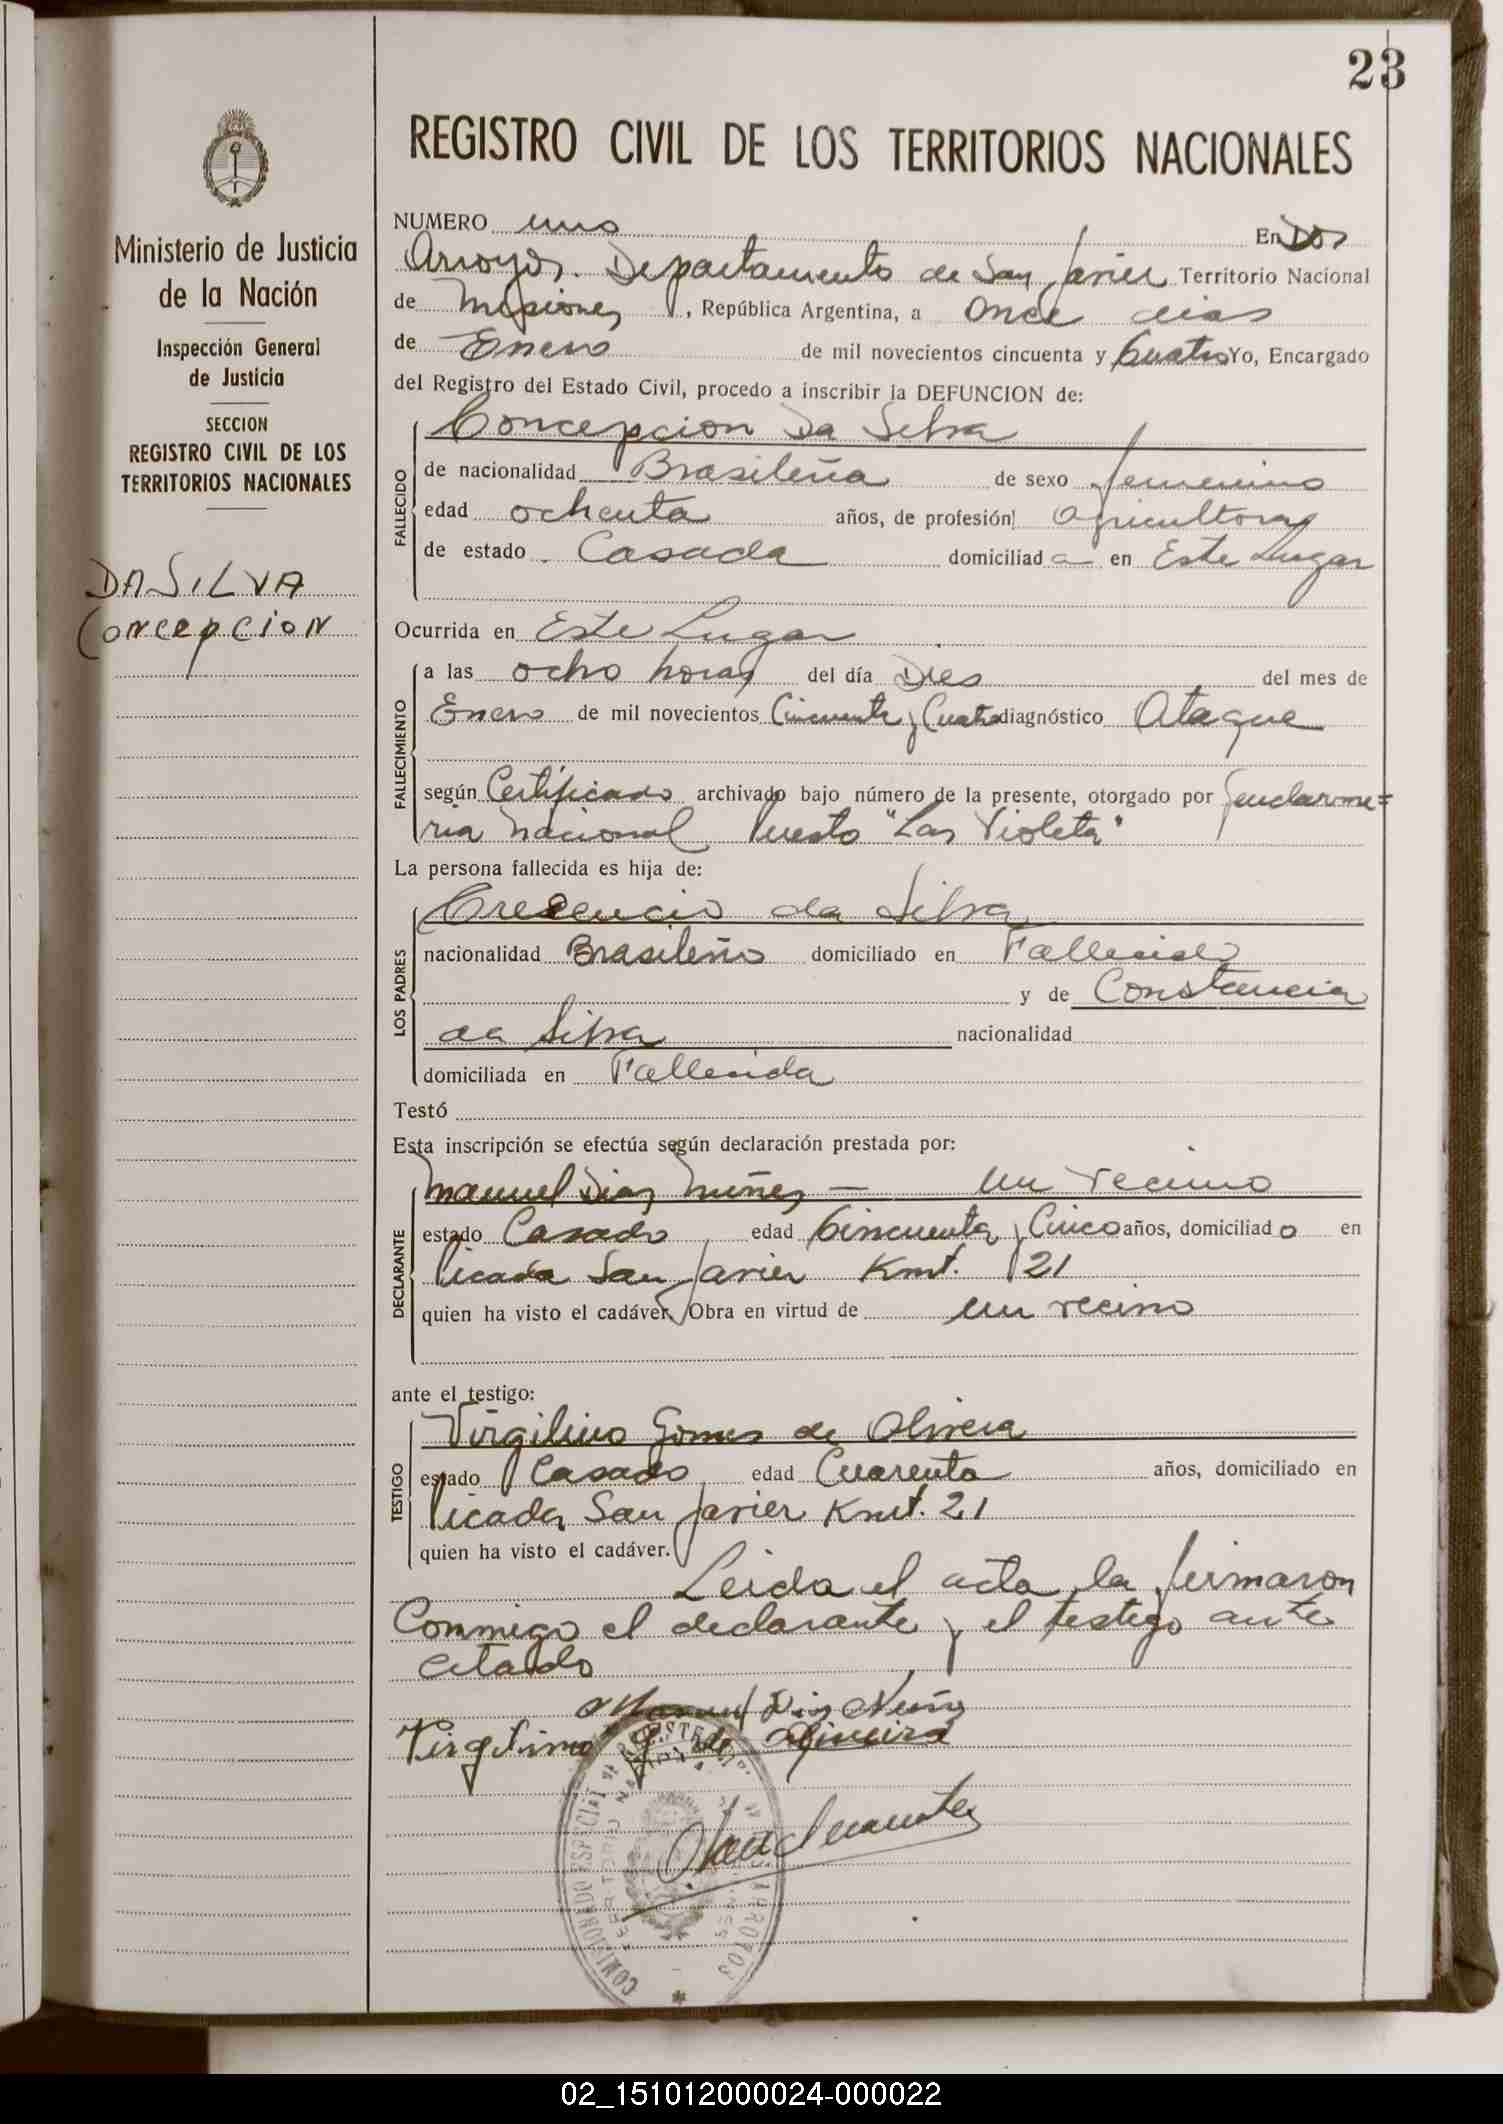 23
REGISTRO CIVIL DE LOS TERRITORIOS NACIONALES
Ministerio de Justicia
de la Nación
Inspección General
de Justicia
SECCION
REGISTRO CIVIL DE LOS
TERRITORIOS NACIONALES
DA SILVA
Concepcion
NUMERO uno En Dos
Arroyos. Departamento de San Javier Territorio Nacional
de Misiones, República Argentina, a once dias
de Enero de mil novecientos cincuenta y Cuatro Yo, Encargado
del Registro del Estado Civil, procedo a inscribir la DEFUNCION de:
Concepcion Da Silva
FALLECIDO
de nacionalidad Brasileña de sexo femenino
edad ochenta años, de profesión Agricultora
de estado Casada domiciliad a en Este Lugar
Ocurrida en Este Lugar
FALLECIMIENTO
a las ocho horas del día Dies del mes de
Enero de mil novecientos Cincuenta y Cuatro diagnóstico Ataque
según Certificado archivado bajo número de la presente, otorgado por Gendarme=
ria Nacional Puesto "Las Violeta"
La persona fallecida es hija de:
Cresencio da Silva
LOS PADRES
nacionalidad Brasileño domiciliado en Fallecido
y de Constancia
da Silva nacionalidad
domiciliada en Fallecida
Testó
Esta inscripción se efectúa según declaración prestada por:
Manuel Dias Nuñes — un vecino
DECLARANTE
estado Casado edad Cincuenta y Cinco años, domiciliado en
Picada San Javier Kmt. 21
quien ha visto el cadáver. Obra en virtud de un vecino
ante el testigo:
Virgilino Gomes de Olivera
TESTIGO
estado Casado edad Cuarenta años, domiciliado en
Picada San Javier Kmt. 21
quien ha visto el cadáver.
Leida el acta la firmaron
Conmigo el declarante y el testigo ante
citado
Manuel Dias Nuñes
Virgilino G. de Oliveira
02_151012000024-000022